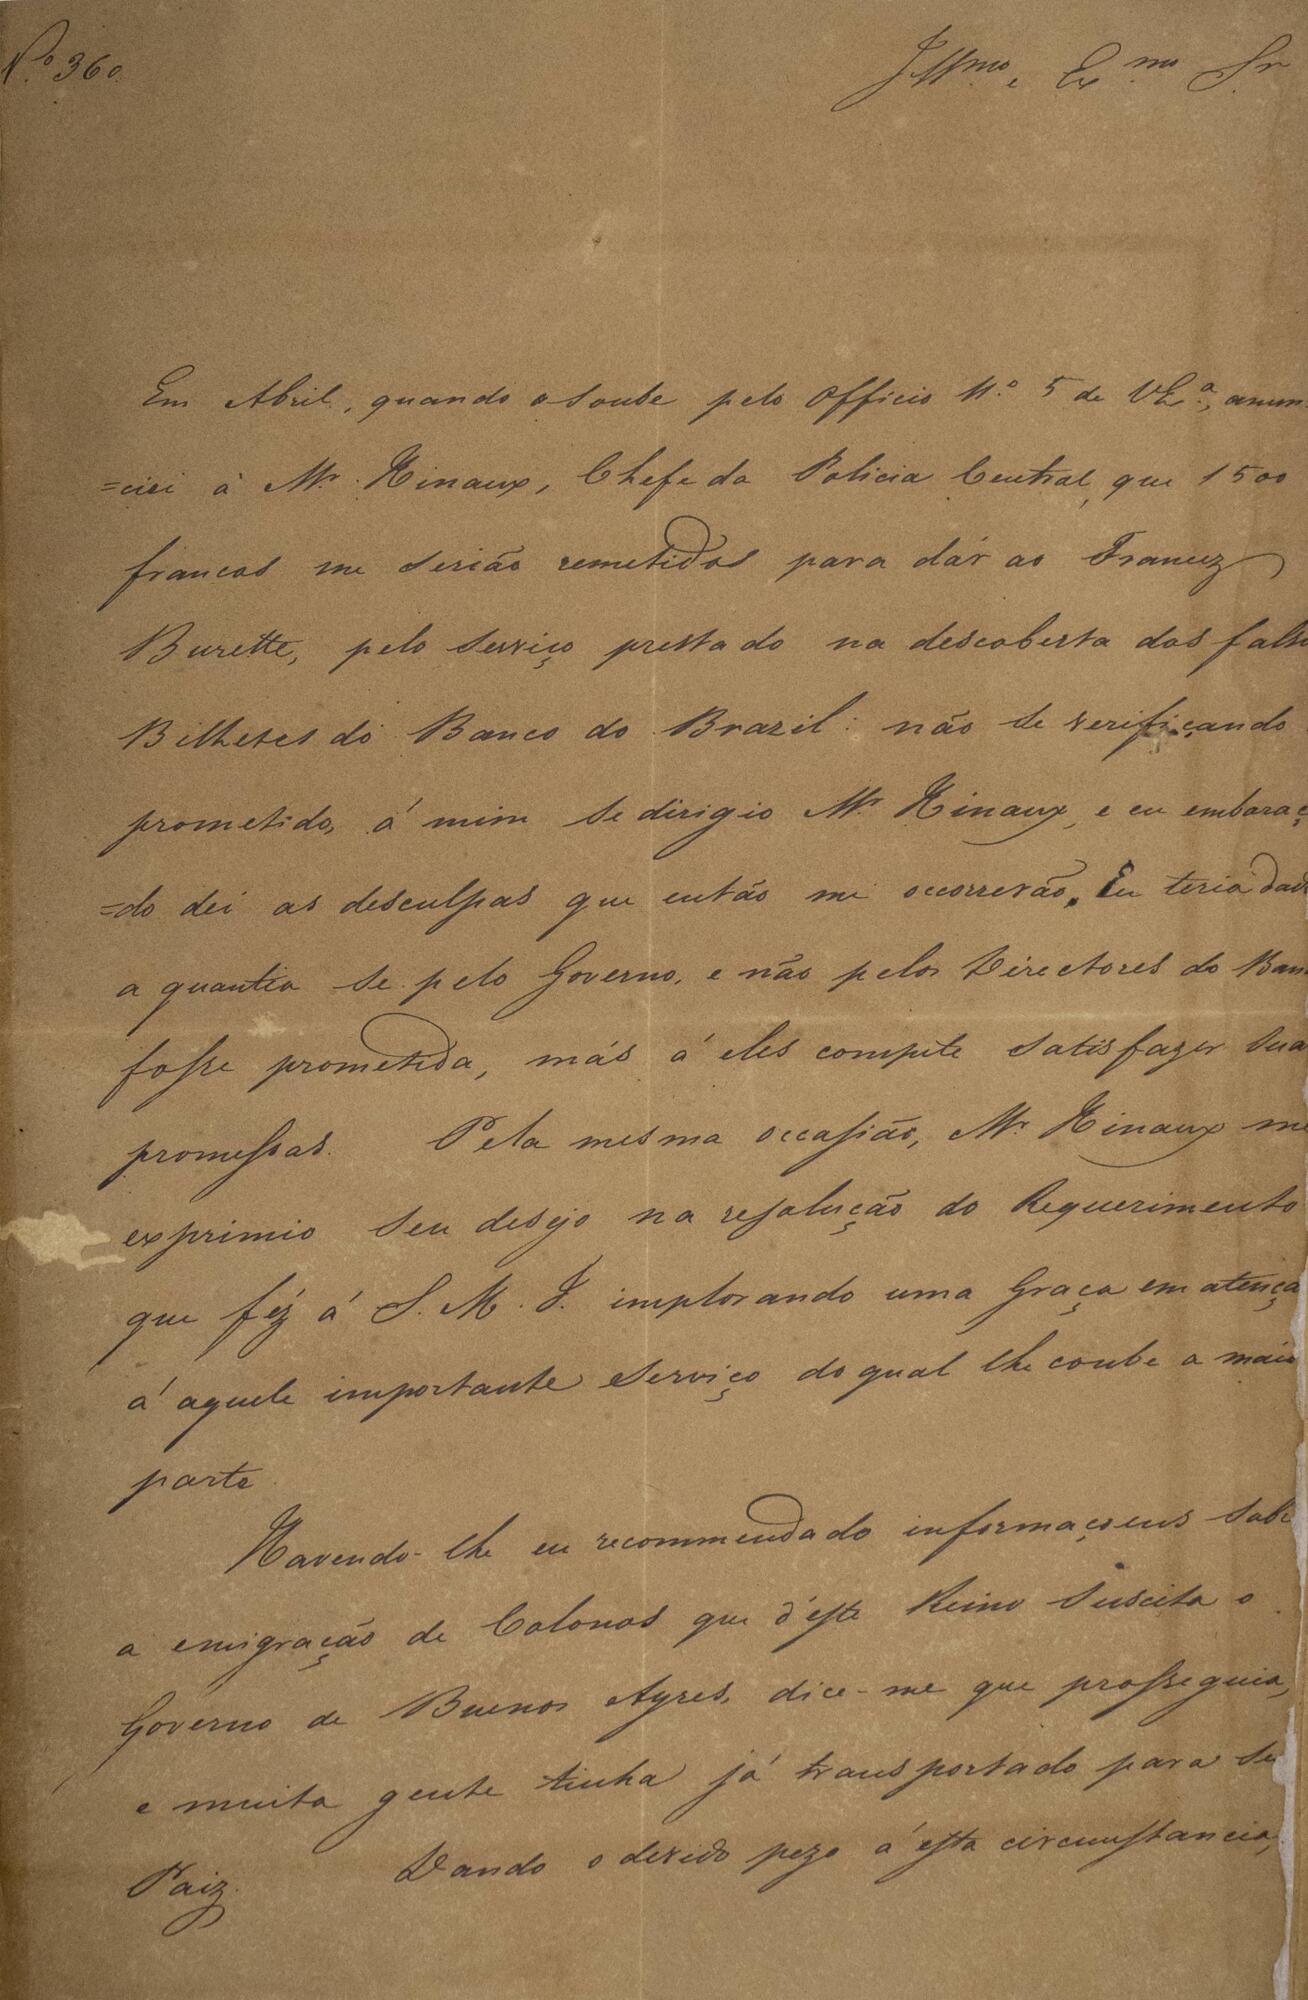 Nº 360
Illmo e Exmo Sr
Em Abril, quando o soube pelo Officio Nº 5 de VEª, anun
=ciei à Mr. Hinaux, Chefe da Policia Central, que 1500
francos me serião remetidos para dár ao Francez
Burette, pelo serviço prestado na descoberta dos fals
Bilhetes do Banco do Brazil: não se verificando
prometido, á mim se dirigio Mr Hinaux, e eu embaraç
=do dei as desculpas que então me occorrerão. Eu teria dad
a quantia se pelo Governo, e não pelos Directores do Ban
fosse prometida, más á eles compete satisfazer sua
promessas. Pela mesma occasião, Mr Hinaux me
exprimio seu desejo na resolução do Requerimento
que féz á S. M. I. implorando uma Graça em atença
á aquele importante serviço do qual lhe coube a maio
parte.
Havendo-lhe eu recommendado informaçoens sob
a emigração de Colonos que d'este Reino suscita o
Governo de Buenos Ayres, dice-me que prosseguia,
e muita gente tinha já transportado para se
Paiz. Dando o devido pezo á esta circunstancia,